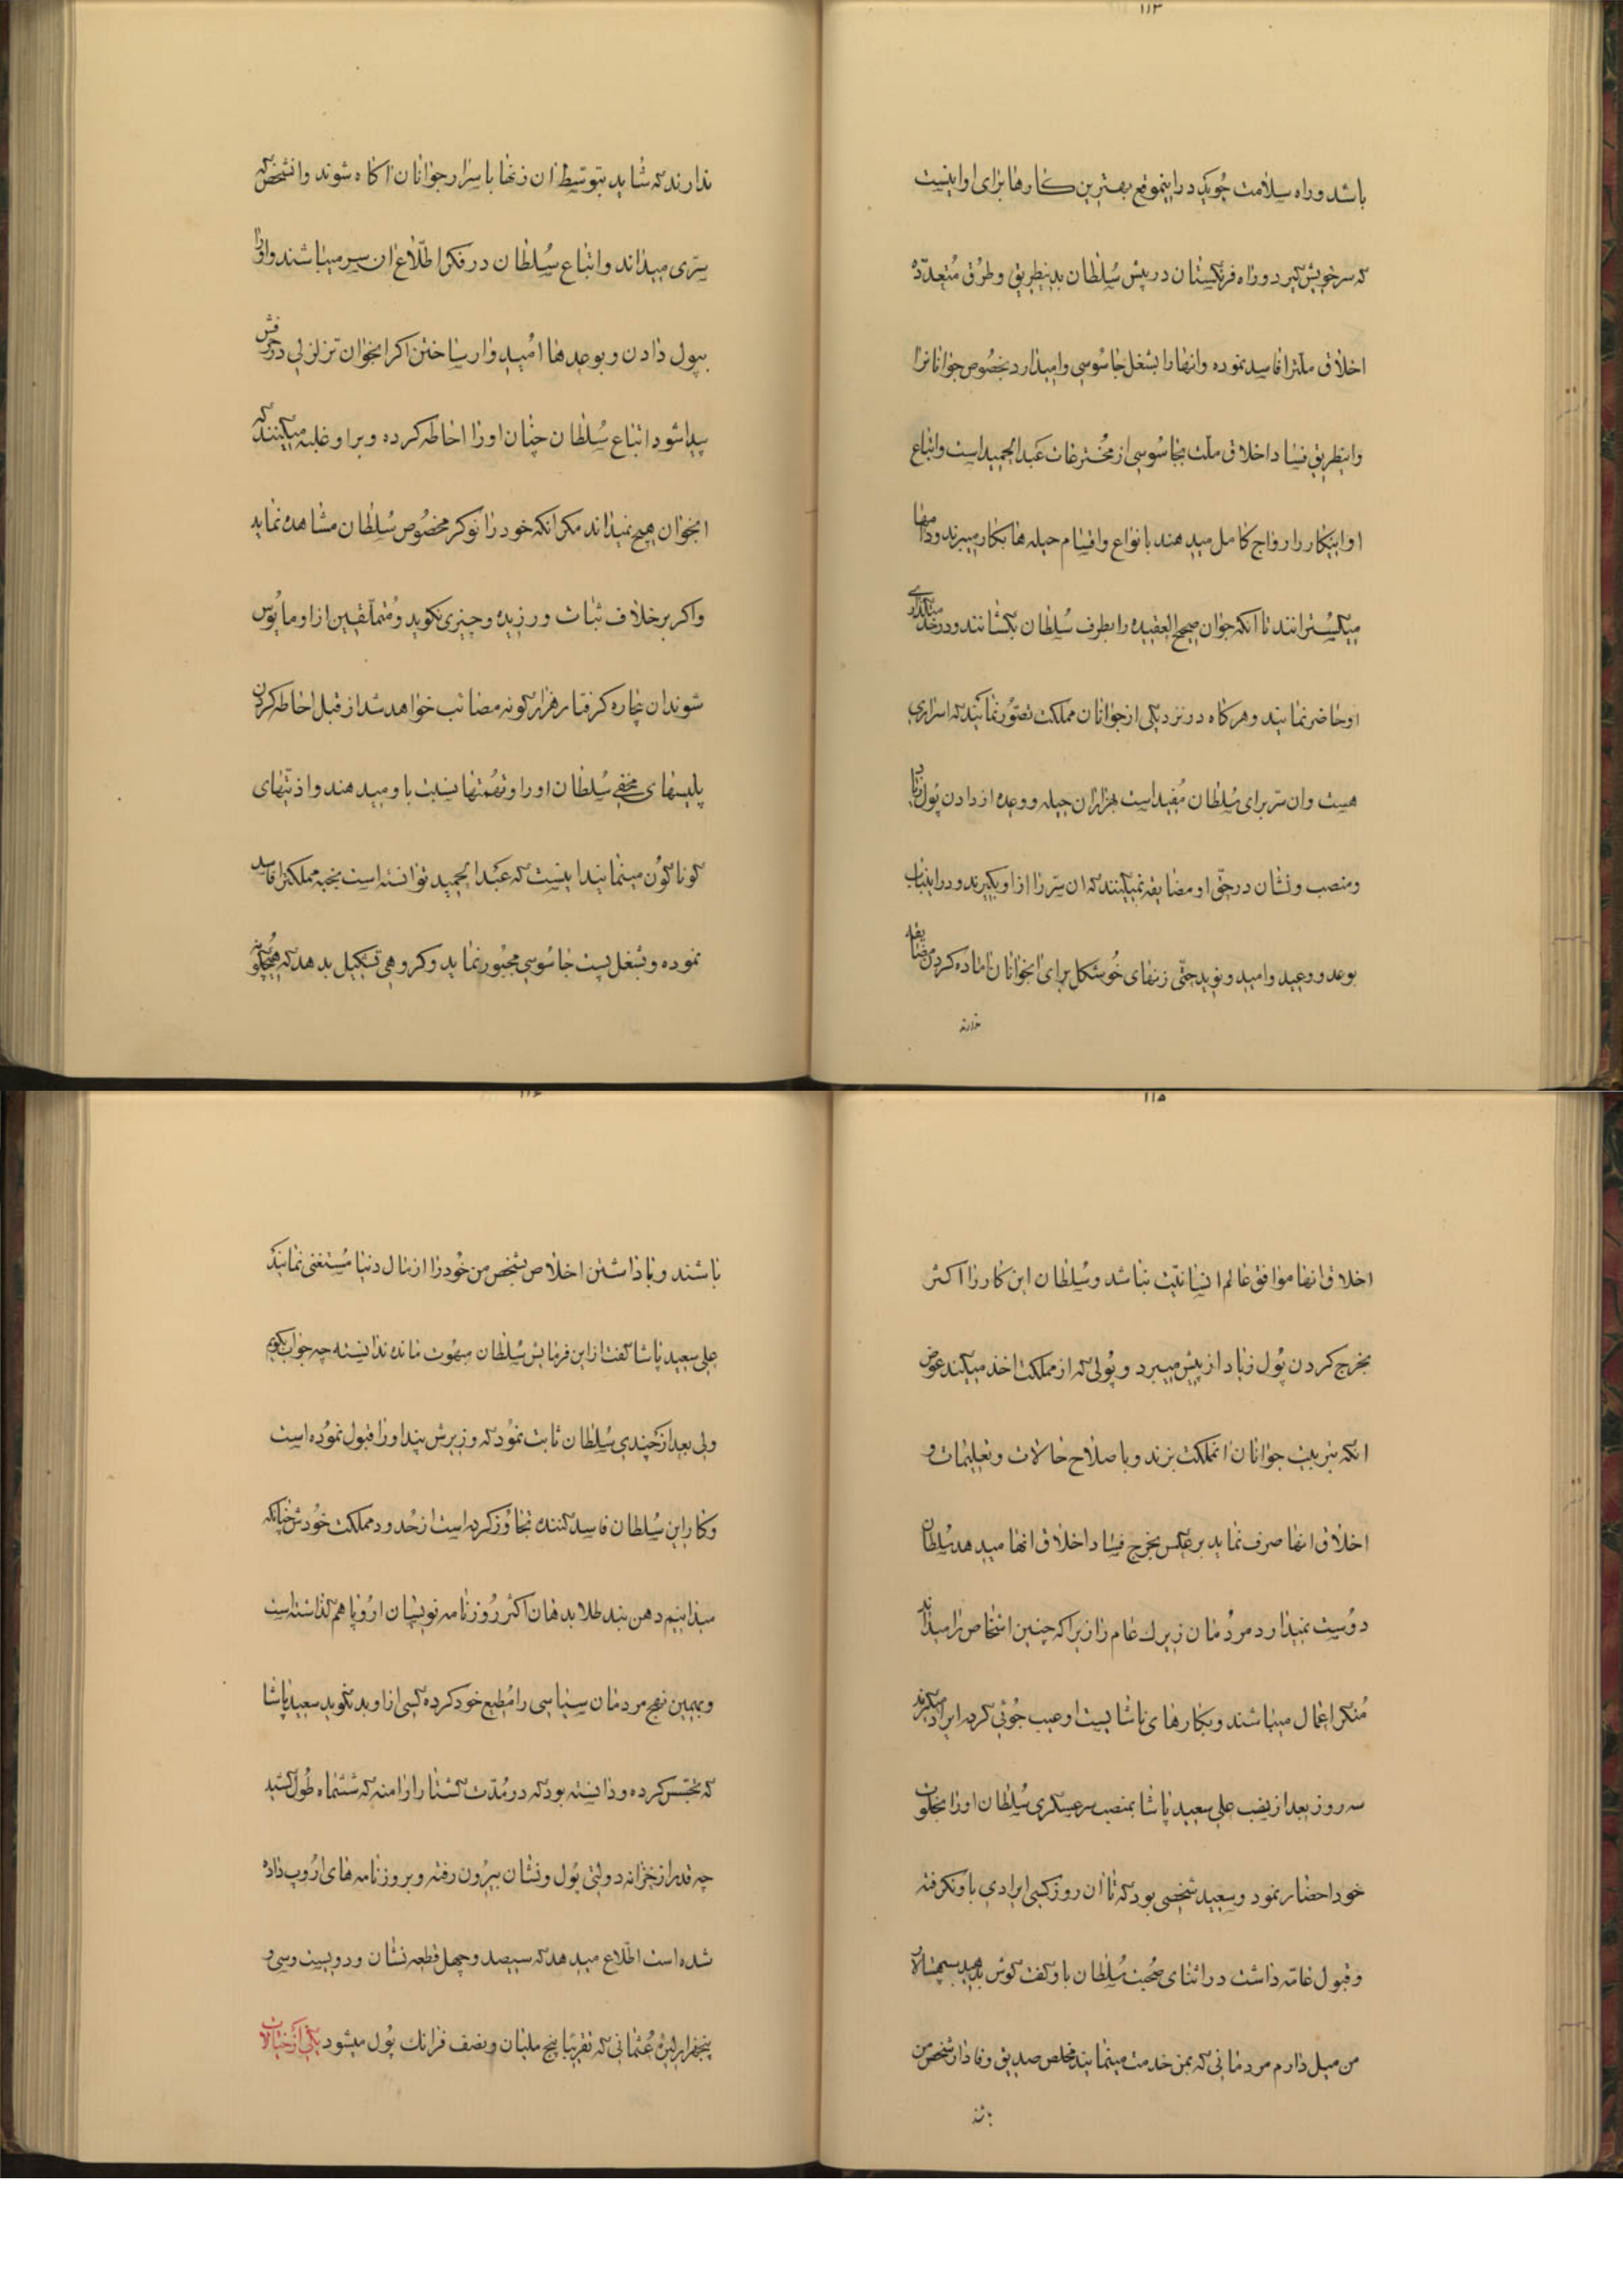 ۱۱۳
باشد و راه سلامت جوید در اینموقع بهترین کارها برای او اینست
که سر خویش گیرد و راه فرنگستان در پیش سلطان بدینطریق و طرق متعدّده
اخلاق ملترا فاسد نموده و انها را بشغل جاسوسی وامیدارد بخصوص جوانانرا
و اینطریق فساد اخلاق ملت بجاسوسی از مخترعات عبدالحمید است و اتباع
او اینکار را رواج کامل میدهند بانواع و اقسام حیله ها بکار میبرند و دامها
میگسترانند تا آنکه جوان صحیح العقیده را بطرف سلطان بکشانند و در خدمتگذاری
او حاضر نمایند و هرگاه در نزد یکی از جوانان مملکت تصوّر نمایند که اسراری
هست و ان سرّ برای سلطان مفید است بهزاران حیله و وعده از دادن پول زیاد
و منصب و نشان در حقّ او مضایقه نمیکنند که ان سرّ را از او بگیرند و در اینباب
بوعد و وعید و امید و نوید حتّی زنهای خوشکل برای انجوانان اماده کردن مضایقه
ندارند
ندارند که شاید بتوسّط ان زنها باسرار جوانان اکاه شوند و انشخص که
سرّی میداند و اتباع سلطان در فکر اطّلاع ان سر میباشند و او را
بپول دادن و بوعدها امید وار ساختن اکر انجوان تزلزلی در خودش
پیدا شود اتباع سلطان چنان او را احاطه کرده و بر او غلبه میکنند که
انجوان هیچ نمیداند مکر انکه خود را نوکر مخصوص سلطان مشاهده نماید
و اکر بر خلاف ثبات ورزیده و چیزی نکوید و متملّقین از او مایوس
شوند ان بیچاره کرفتار هزار کونه مصائب خواهد شد از قبل احاطه کردن
پلیسهای مخفی سلطان او را و تهمتها نسبت باو میدهند و اذیّتهای
کوناکون مینمایند اینست که عبدالحمید توانسته است نخبه مملکترا فاسد
نموده و بشغل پست جاسوسی مجبور نماید و کروهی تشکیل بدهد که هیچکونه
۱۱۵
اخلاق انها موافق عالم انسانیّت نباشد و سلطان این کار را اکثر
بخرج کردن پول زیاد از پیش میبرد و پولی که از مملکت اخذ میکند عوض
انکه بتربیت جوانان انمملکت بزند و باصلاح حالات و تعلیمات و
اخلاق انها صرف نماید برعکس بخرج فساد اخلاق انها میدهد سلطان
دوست نمیدارد مردمان زیرک عالم را زیرا که چنین اشخاص را میداند
منکر اعمال میباشند و بکارهای ناشایست او عیب جوئی کرده ایراد میکیرند
سه روز بعد از نصب علی سعید پاشا بمنصب سرعسکری سلطان او را بخلوت
خود احضار نمود و سعید شخصی بود که تا ان روز کسی ایرادی باو نکرفته
و قبول عامّه داشت در اثنای صحبت سلطان باو کفت کوش بدهید سپهسالار
من میل دارم مردمانی که بمن خدمت مینمایند مخلص صدیق وفادار شخص من
باشند
۱۱۶
باشند و با داشتن اخلاص بشخص من خود را از مال دنیا مستغنی نمایند
علی سعید پاشا کفت از این فرمایش سلطان مبهوت مانده ندانسته چه جواب بکویم
ولی بعد از چندی سلطان ثابت نمود که وزیرش پند او را قبول نموده است
و کار این سلطان فاسد کننده تجاوز کرده است از حدود مملکت خودش چنانکه
میدانیم دهن بند طلا بدهان اکثر روزنامه نویسان اروپا هم کذاشته است
و بهمین نهج مردمان سیاسی را مطیع خود کرده کسی از او بد نکوید سعید پاشا
که تجسّس کرده و دانسته بود که در مدّت کشتار ارامنه که ششماه طول کشید
چه قدر از خزانه دولتی پول و نشان بیرون رفته و بروزنامه های اروپ داده
شده است اطّلاع میدهد که سیصد و چهل قطعه نشان و دویست و سی و
پنجهزار لیره عثمانی که تقریبا پنج ملیان و نصف فرانک پول میشود یکی از خیالات